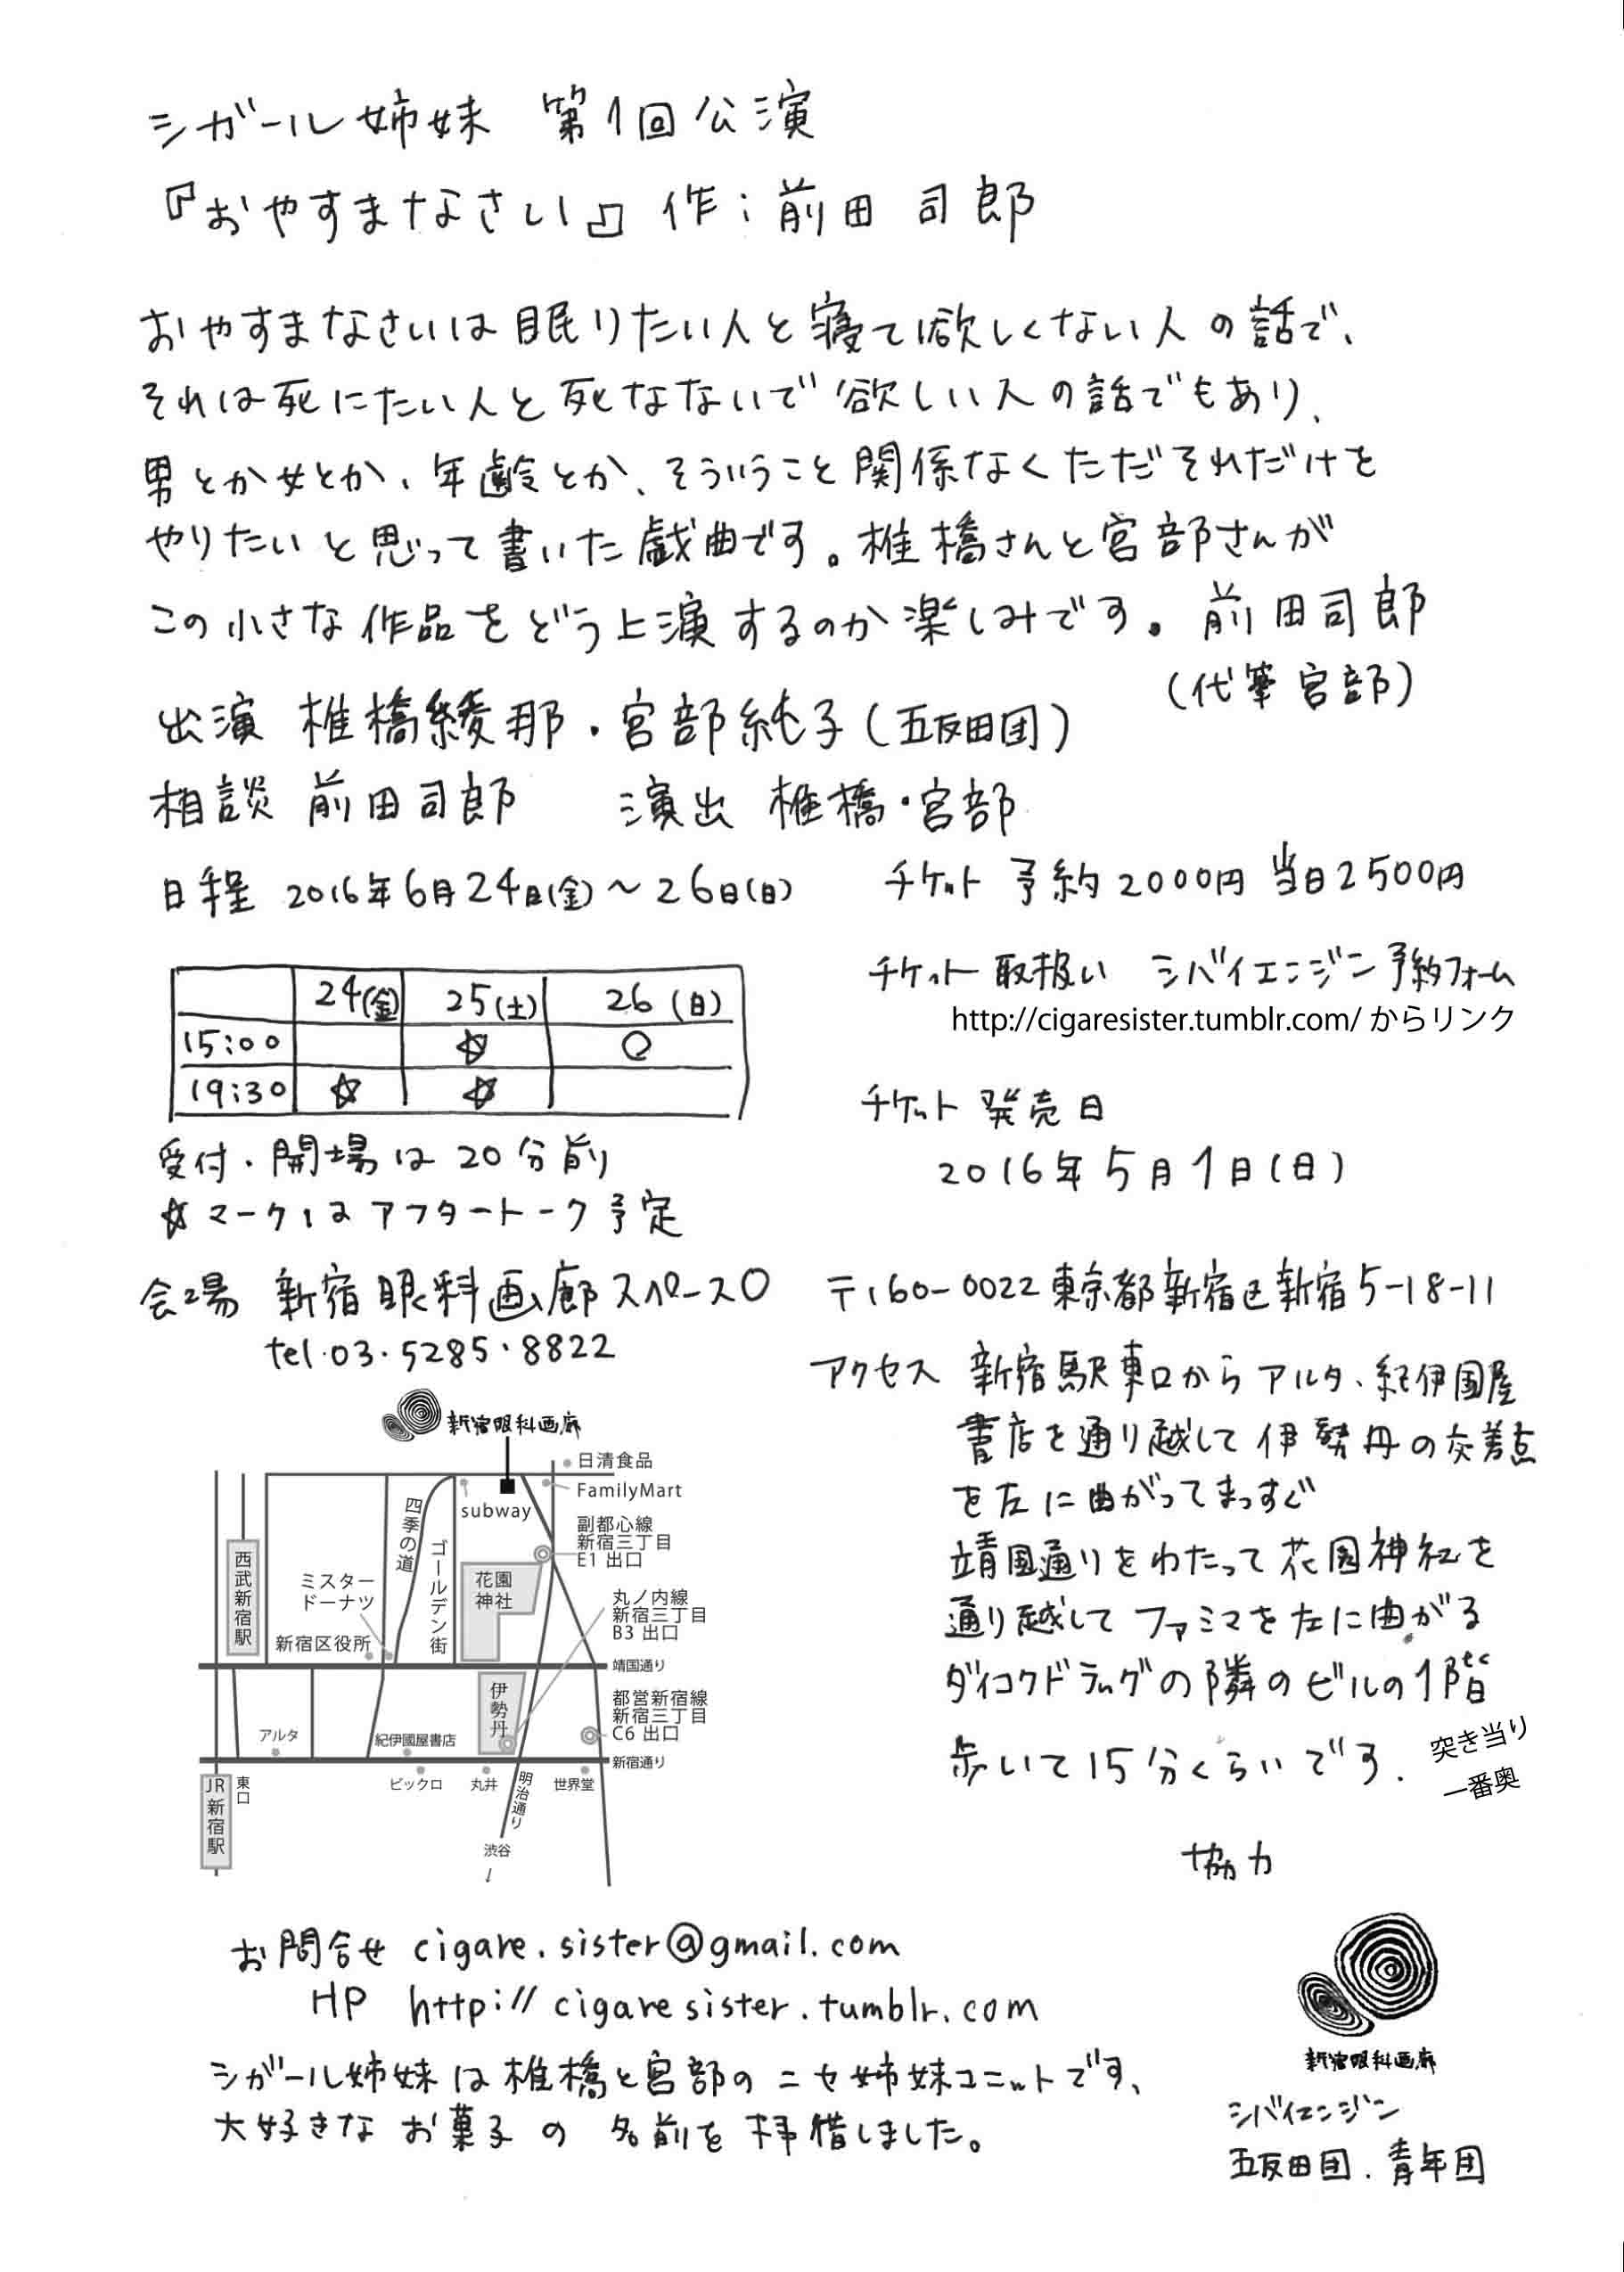 シガール姉妹 第1回公演
『おやすまなさい』作：前田 司郎
おやすまなさいは眠りたい人と寝て欲しくない人の話で、
それは死にたい人と死なないで欲しい人の話でもあり、
男とか女とか、年齢とか、そういうこと関係なくただそれだけを
やりたいと思って書いた戯曲です。椎橋さんと宮部さんが
この小さな作品をどう上演するのか楽しみです。前田司郎
（代筆 宮部）
出演 椎橋綾那・宮部純子（五反田団）
相談 前田司郎 演出 椎橋・宮部
日程 2016年6月24日(金)～26日(日)
24(金) 25(土) 26(日)
15:00 ☆ ○
19:30 ☆ ☆
受付・開場は20分前
☆マークはアフタートーク予定
チケット 予約2000円 当日2500円
チケット取扱い シバイエンジン予約フォーム
http://cigaresister.tumblr.com/ からリンク
チケット発売日
2016年5月1日(日)
会場 新宿眼科画廊スペースO
tel.03.5285.8822
〒160-0022東京都新宿区新宿5-18-11
アクセス 新宿駅東口からアルタ、紀伊国屋
書店を通り越して伊勢丹の交差点
を左に曲がってまっすぐ
靖国通りをわたって花園神社を
通り越してファミマを左に曲がる
ダイコクドラッグの隣のビルの1階
突き当り
一番奥
歩いて15分くらいです.
新宿眼科画廊
日清食品
FamilyMart
subway
副都心線
新宿三丁目
E1 出口
四季の道
ゴールデン街
西武新宿駅
ミスター
ドーナツ
花園
神社
丸ノ内線
新宿三丁目
B3 出口
新宿区役所
靖国通り
伊勢丹
都営新宿線
新宿三丁目
C6 出口
アルタ
紀伊國屋書店
新宿通り
JR新宿駅
東口
ビックロ
丸井
明治通り
世界堂
渋谷
↓
協力
新宿眼科画廊
シバイエンジン
五反田団.青年団
お問合せ cigare.sister@gmail.com
HP http://cigaresister.tumblr.com
シガール姉妹は椎橋と宮部のニセ姉妹ユニットです、
大好きなお菓子の名前を拝借しました。